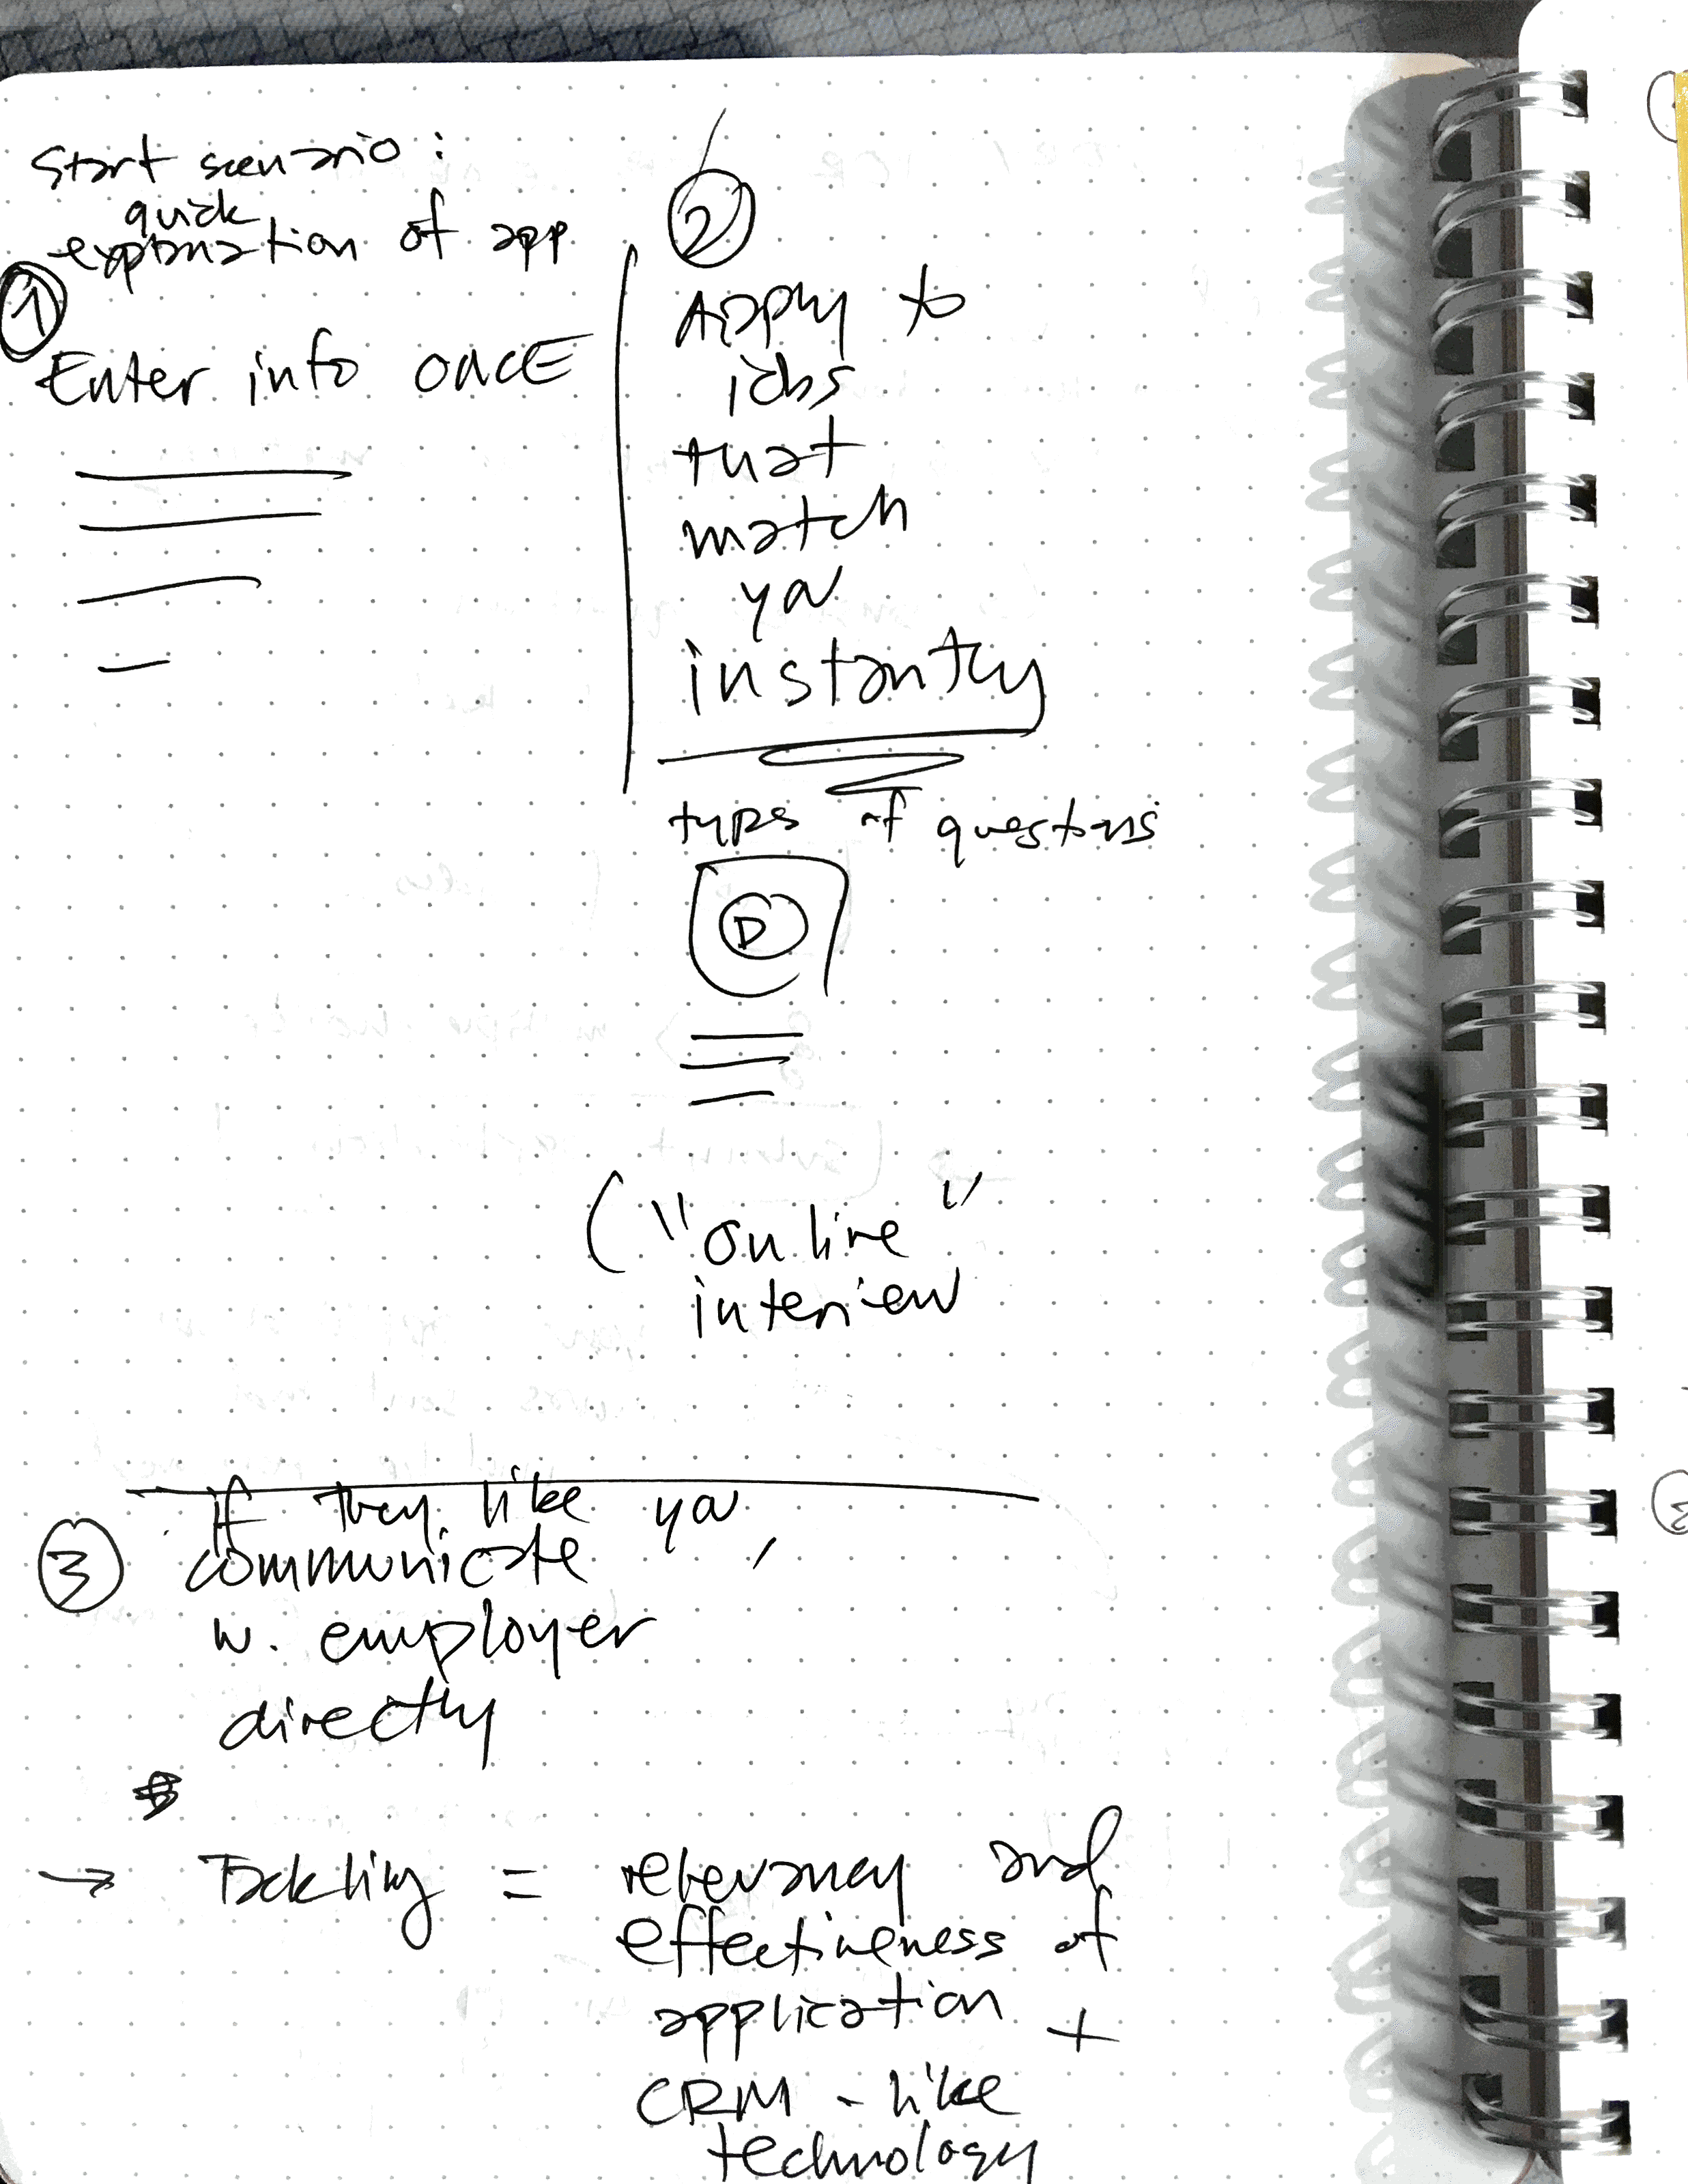 Start scenario:
quick
explanation of app
1
Enter info ONCE
2
Apply to
jobs
that
match
you
instantly
types of questions
D
("online"
interview
3
if they like you,
communicate
w. employer
directly
→ Tackling = relevancy and
effectiveness of
application +
CRM-like
technology